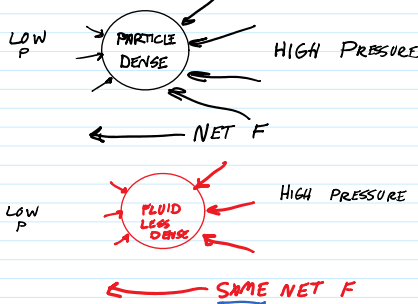 LOW
P
PARTICLE
DENSE
HIGH PRESSURE
NET F
LOW
P
FLUID
LESS
DENSE
HIGH PRESSURE
SAME NET F